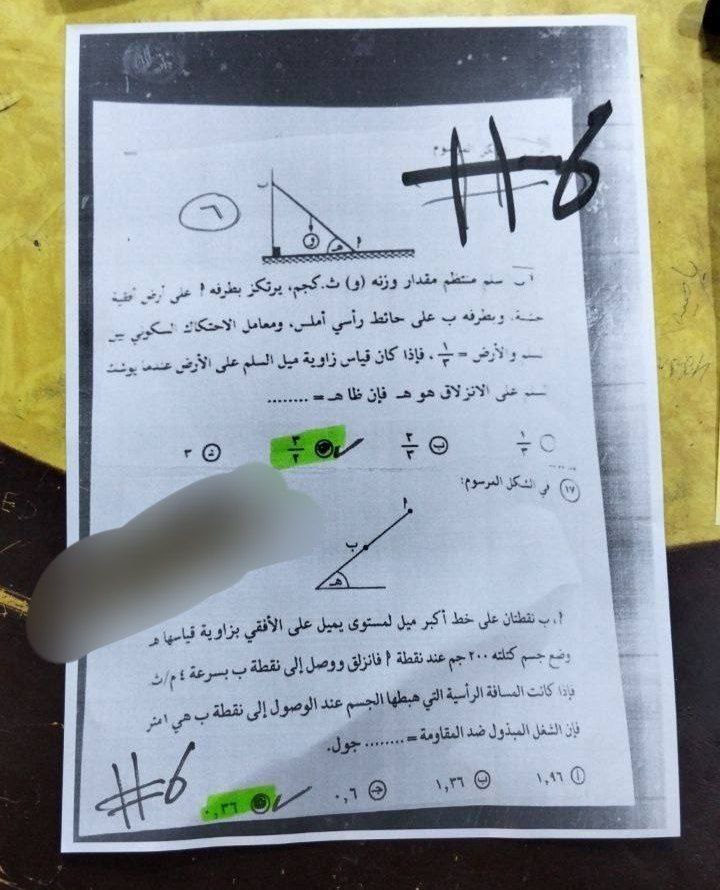 #6
الشكل المرسوم
٦
ب
و
هـ
أ
أ ب سلم منتظم مقدار وزنه (و) ث.كجم، يرتكز بطرفه أ على أرض أفقية
خشنة، وبطرفه ب على حائط رأسي أملس، ومعامل الاحتكاك السكوني بين
السلم والأرض = ١/٣، فإذا كان قياس زاوية ميل السلم على الأرض عندما يوشك
السلم على الانزلاق هو هـ فإن ظا هـ = ........
١/٣
ب ٢/٣
٣/٢
د ٣
١٧ في الشكل المرسوم:
أ
ب
هـ
أ، ب نقطتان على خط أكبر ميل لمستوى يميل على الأفقي بزاوية قياسها هـ
وضع جسم كتلته ٢٠٠ جم عند نقطة أ فانزلق ووصل إلى نقطة ب بسرعة ٤ م/ث
فإذا كانت المسافة الرأسية التي هبطها الجسم عند الوصول إلى نقطة ب هي ١متر
فإن الشغل المبذول ضد المقاومة = ........ جول.
أ ١,٩٦
ب ١,٣٦
ج ٠,٦
٠,٣٦
#6